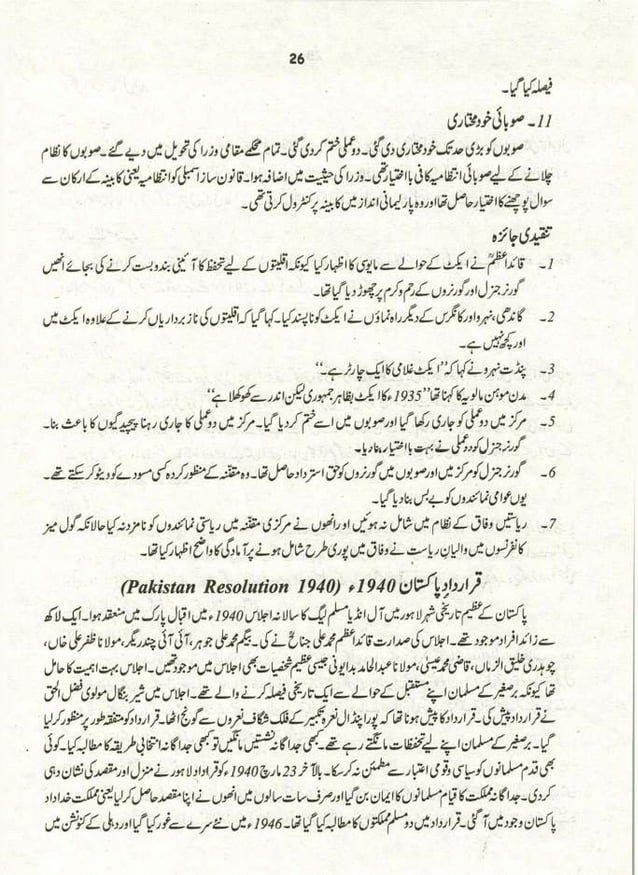 26
فیصلہ کیا گیا۔
11۔ صوبائی خودمختاری
صوبوں کو بڑی حد تک خودمختاری دی گئی۔ دو عملی ختم کر دی گئی۔ تمام محکمے مقامی وزرا کی تحویل میں دیے گئے۔ صوبوں کا نظام
چلانے کے لیے صوبائی انتظامیہ کافی بااختیار تھی۔ وزرا کی حیثیت میں اضافہ ہوا۔ قانون ساز اسمبلی کو انتظامیہ یعنی کابینہ کے ارکان سے
سوال پوچھنے کا اختیار حاصل تھا اور وہ پارلیمانی انداز میں کابینہ پر کنٹرول کرتی تھی۔
تنقیدی جائزہ
1۔ قائداعظمؒ نے ایکٹ کے حوالے سے مایوسی کا اظہار کیا کیونکہ اقلیتوں کے لیے تحفظ کا آئینی بندوبست کرنے کی بجائے انھیں
گورنر جنرل اور گورنروں کے رحم و کرم پر چھوڑ دیا گیا تھا۔
2۔ گاندھی، نہرو اور کانگرس کے دیگر راہ نماؤں نے ایکٹ کو ناپسند کیا۔ کہا گیا کہ اقلیتوں کی ناز برداریاں کرنے کے علاوہ ایکٹ میں
اور کچھ نہیں ہے۔
3۔ پنڈت نہرو نے کہا کہ ”ایکٹ غلامی کا ایک چارٹر ہے۔“
4۔ مدن موہن مالویہ کا کہنا تھا ”1935ء کا ایکٹ بظاہر جمہوری لیکن اندر سے کھوکھلا ہے“
5۔ مرکز میں دو عملی کو جاری رکھا گیا اور صوبوں میں اسے ختم کر دیا گیا۔ مرکز میں دو عملی کا جاری رہنا پیچیدگیوں کا باعث بنا۔
گورنر جنرل کو دو عملی نے بہت بااختیار بنا دیا۔
6۔ گورنر جنرل کو مرکز میں اور صوبوں میں گورنروں کو حق استرداد حاصل تھا۔ وہ مقننہ کے منظور کردہ کسی مسودے کو ویٹو کر سکتے تھے۔
یوں عوامی نمائندوں کو بے بس بنا دیا گیا۔
7۔ ریاستیں وفاق کے نظام میں شامل نہ ہوئیں اور انھوں نے مرکزی مقننہ میں ریاستی نمائندوں کو نامزد نہ کیا حالانکہ گول میز
کانفرنسوں میں والیان ریاست نے وفاق میں پوری طرح شامل ہونے پر آمادگی کا واضح اظہار کیا تھا۔
قراردادِ پاکستان 1940ء (Pakistan Resolution 1940)
پاکستان کے عظیم تاریخی شہر لاہور میں آل انڈیا مسلم لیگ کا سالانہ اجلاس 1940ء میں اقبال پارک میں منعقد ہوا۔ ایک لاکھ
سے زائد افراد موجود تھے۔ اجلاس کی صدارت قائداعظم محمد علی جناحؒ نے کی۔ بیگم محمد علی جوہر، آئی آئی چندریگر، مولانا ظفر علی خاں،
چوہدری خلیق الزماں، قاضی محمد عیسیٰ، مولانا عبدالحامد بدایونی جیسی عظیم شخصیات بھی اجلاس میں موجود تھیں۔ اجلاس بہت اہمیت کا حامل
تھا کیونکہ برصغیر کے مسلمان اپنے مستقبل کے حوالے سے ایک تاریخی فیصلہ کرنے والے تھے۔ اجلاس میں شیر بنگال مولوی فضل الحق
نے قرارداد پیش کی۔ قرارداد کا پیش ہونا تھا کہ پورا پنڈال نعرہ تکبیر کے فلک شگاف نعروں سے گونج اٹھا۔ قرارداد کو متفقہ طور پر منظور کر لیا
گیا۔ برصغیر کے مسلمان اپنے لیے تحفظات مانگتے رہے تھے۔ کبھی جداگانہ نشستیں مانگیں تو کبھی جداگانہ انتخابی طریقہ کا مطالبہ کیا۔ کوئی
بھی قدم مسلمانوں کو سیاسی و قومی اعتبار سے مطمئن نہ کر سکا۔ بالآخر 23 مارچ 1940ء کو قرارداد لاہور نے منزل اور مقصد کی نشان دہی
کر دی۔ جداگانہ مملکت کا قیام مسلمانوں کا ایمان بن گیا اور صرف سات سالوں میں انھوں نے اپنا مقصد حاصل کر لیا یعنی مملکت خداداد
پاکستان وجود میں آ گئی۔ قرارداد میں دو مسلم مملکتوں کا مطالبہ کیا گیا تھا۔ 1946ء میں نئے سرے سے غور کیا گیا اور دہلی کے کنونشن میں